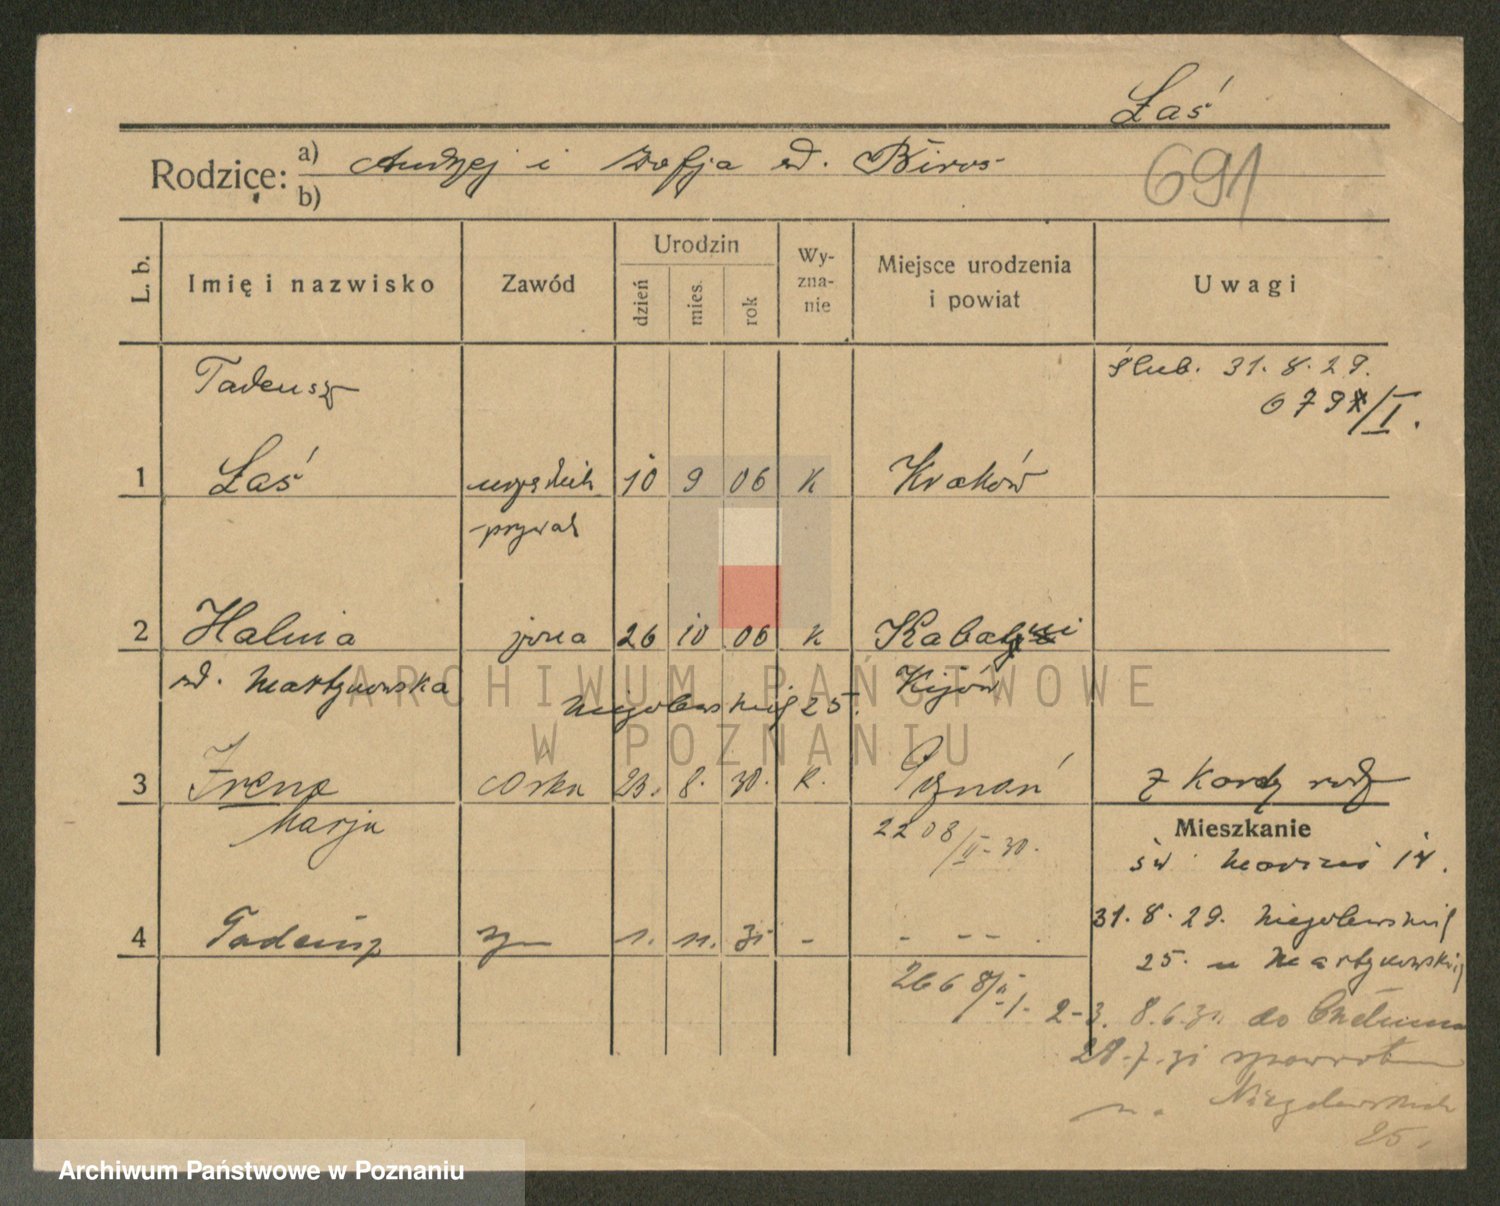 Łaś
Rodzice: a) Andrzej i Zofja zd. Biros
b)
691
L. b. Imię i nazwisko Zawód Urodzin dzień mies. rok Wyznanie Miejsce urodzenia i powiat Uwagi
Tadeusz Ślub. 31. 8. 29.
679 /I.
1 Łaś 10 9 06 K Kraków
prywat
2 Halina żona 26 10 06 K
zd. Martynowska Kijów
Niegolewskich 25.
3 Irena córka 23. 8. 30. K. Poznań z Karty rodz
Marja 2208/II-30.
Mieszkanie
św Marcin 14.
31. 8. 29. Niegolewskich
4 Tadeusz syn 1. 11. 31 - - - - .
25. u Martynowskiej
2668/II
2-3. 8.6.31. do Chełmna
28.7.31 spowrotem
Niegolewskich
25.
ARCHIWUM PAŃSTWOWE
W POZNANIU
Archiwum Państwowe w Poznaniu